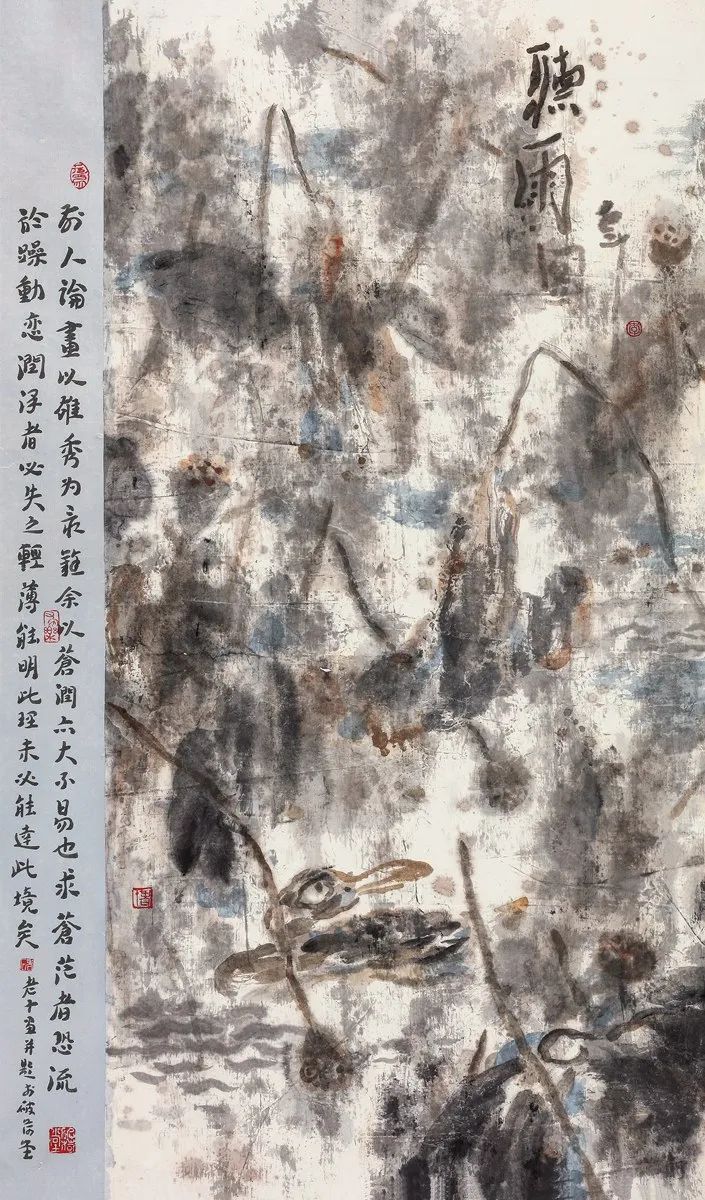 聽雨
老十
前人論畫以雄秀为最難余以蒼潤亦大不易也求蒼茫者恐流
於躁動恋潤浮者必失之輕薄能明此理未必能達此境矣
老十畫并題於破荷堂